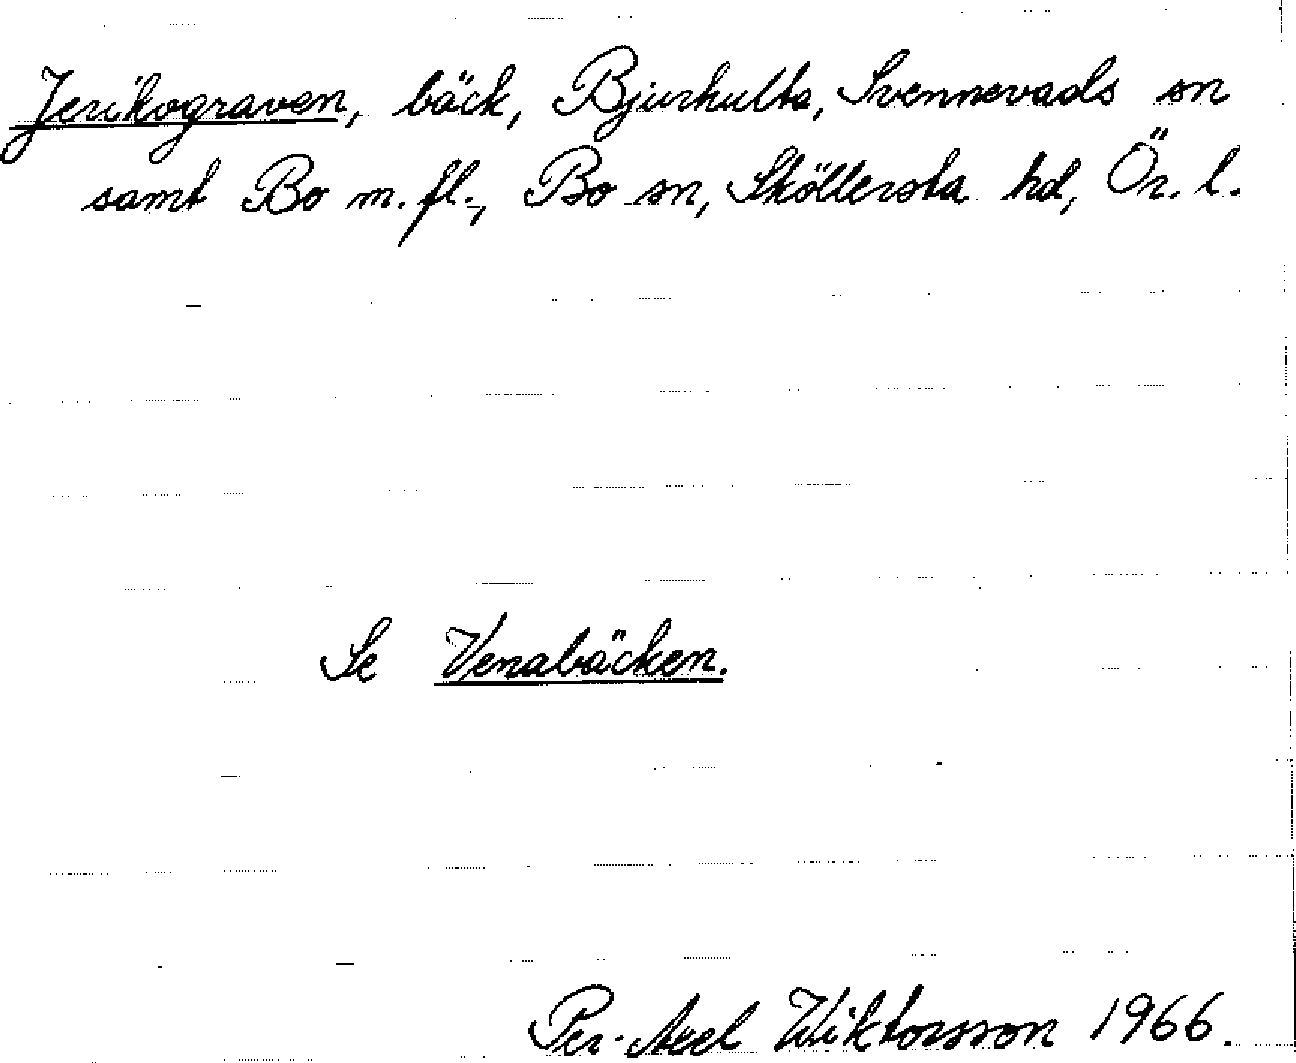 Jerikograven, bäck, Bjurhulta, Svennevads sn
samt Bo m. fl., Bo sn, Sköllersta hd, Ör. l.
Se Venabäcken.
Per-Axel Wiktorsson 1966.